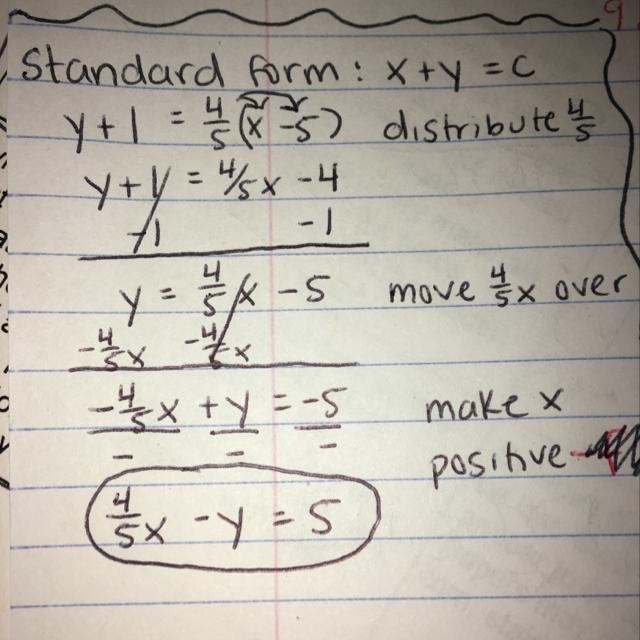 Standard form: x+y = c
y+1 = 4/5(x -5) distribute 4/5
y+1 = 4/5x -4
-1 -1
y = 4/5x -5 move 4/5x over
-4/5x -4/5x
-4/5x +y = -5 make x
- - - positive
4/5x -y = 5